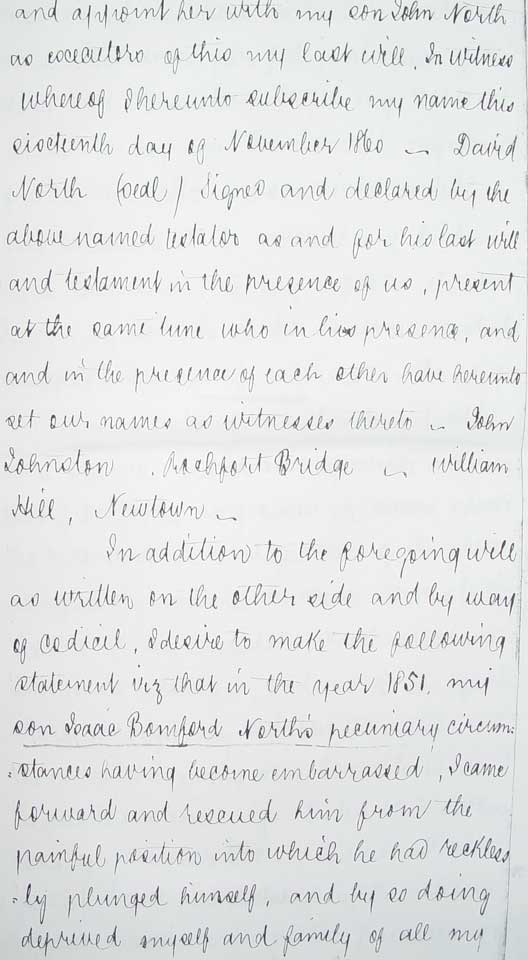 and appoint her with my son John North
as executors of this my last will, In witness
whereof I hereunto subscribe my name this
sixteenth day of November 1860 – David
North (seal) Signed and declared by the
above named testator as and for his last will
and testament in the presence of us, present
at the same time who in his presence, and
and in the presence of each other have hereunto
set our names as witnesses thereto – John
Johnston, Rochfort Bridge – William
Hill, Newtown –
In addition to the foregoing will
as written on the other side and by way
of codicil, I desire to make the following
statement viz that in the year 1851, my
son Isaac Bomford North's pecuniary circum:
:stances having become embarrassed, I came
forward and rescued him from the
painful position into which he had reckless
:ly plunged himself, and by so doing
deprived myself and family of all my